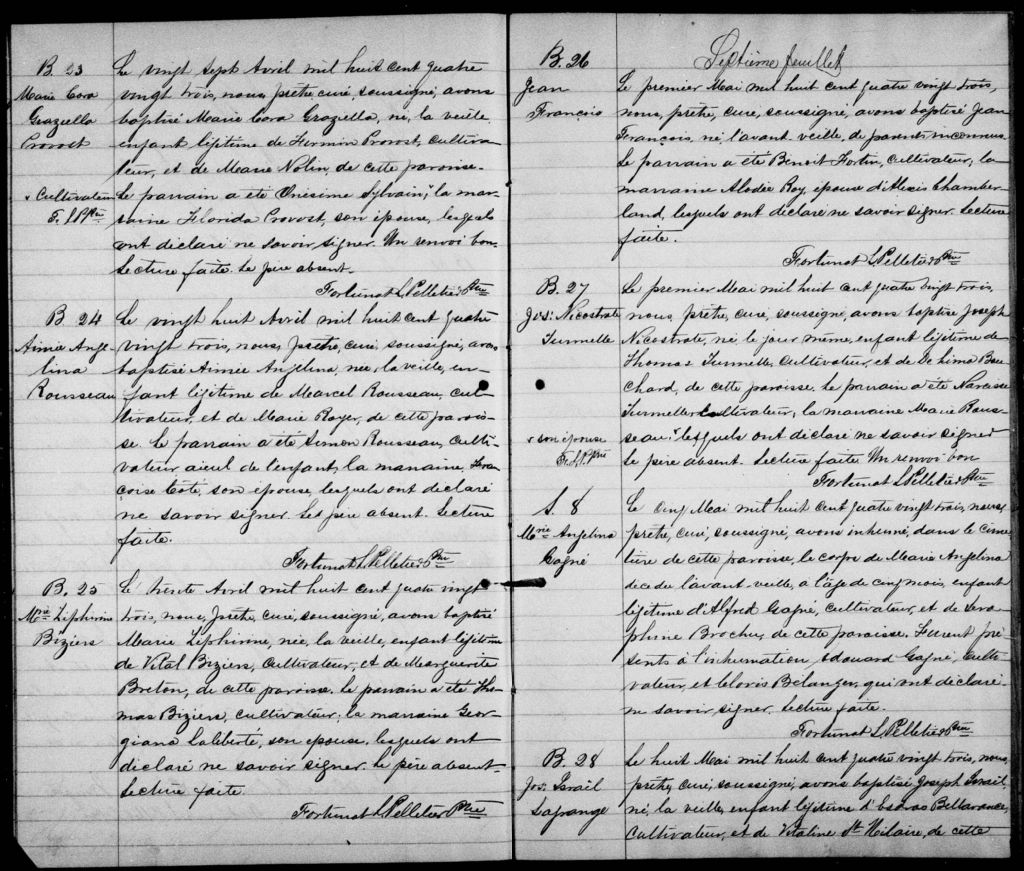 B. 23
Marie Cora
Graziella
Provost
Le vingt sept Avril mil huit cent quatre
vingt trois, nous, prêtre, curé, soussigné, avons
baptisé Marie Cora Graziella, né, la veille,
enfant légitime de Firmin Provost, cultiva-
teur, et de Marie Nolin, de cette paroisse.
Le parrain a été Onésime Sylvain, la mar-
raine Florida Provost, son épouse, lesquels
ont déclaré ne savoir signer. Un renvoi bon.
Lecture faite. Le père absent.
Cultivateur
F. L. P. Ptre
Fortunat L Pelletier Ptre
B 24
Aimée Ange-
lina
Rousseau
Le vingt huit Avril mil huit cent quatre
vingt trois, nous, prêtre, curé, soussigné, avons
baptisé Aimée Angelina, née, la veille, en-
fant légitime de Marcel Rousseau, cul-
tivateur, et de Marie Royer, de cette parois-
se. Le parrain a été Simon Rousseau, culti-
vateur aieul de l'enfant, la marraine, Fran-
çoise Côté, son épouse, lesquels ont déclaré
ne savoir signer. Le père absent. Lecture
faite.
Fortunat L Pelletier Ptre
B. 25
Mrie Zéphirine
Biziers
Le trente Avril mil huit cent quatre vingt
trois, nous, prêtre, curé, soussigné, avons baptisé
Marie Zéphirine, née, la veille, enfant légitime
de Vital Biziers, cultivateur, et de Marguerite
Breton, de cette paroisse. Le parrain a été Tho-
mas Biziers, cultivateur, la marraine Geor-
giana Laliberté, son épouse, lesquels ont
déclaré ne savoir signer. Le père absent.
Lecture faite.
Fortunat L Pelletier Ptre
Septième feuillet
B. 26
Jean
François
Le premier Mai mil huit cent quatre vingt trois,
nous, prêtre, curé, soussigné, avons baptisé Jean
François, né, l'avant veille de parents inconnus.
Le parrain a été Benoit Fortin, cultivateur, la
marraine Alodie Roy, épouse d'Alexis Chamber-
land, lesquels ont déclaré ne savoir signer. Lecture
faite.
Fortunat L Pelletier Ptre
B. 27
Jos: Nicostrate
Turmelle
Le premier Mai mil huit cent quatre vingt trois,
nous, prêtre, curé, soussigné, avons baptisé Joseph
Nicostrate, né le jour même, enfant légitime de
Thomas Turmelle, cultivateur, et de Delima Bou-
chard, de cette paroisse. Le parrain a été Narcisse
Turmelle cultivateur, la marraine Marie Rous-
seau, lesquels ont déclaré ne savoir signer
Le père absent. Lecture faite. Un renvoi bon
son épouse
F. L. P. Ptre
Fortunat L Pelletier Ptre
S. 8
Mrie Angelina
Gagné
Le cinq Mai mil huit cent quatre vingt trois, nous,
prêtre, curé, soussigné, avons inhumé, dans le cime-
tière de cette paroisse, le corps de Marie Angelina
décédé l'avant veille, à l'âge de cinq mois, enfant
légitime d'Alfred Gagné, cultivateur, et de Séra-
phine Brochu, de cette paroisse. Furent pré-
sents à l'inhumation, Edouard Gagné, culti-
vateur, et Cloris Bélanger, qui ont déclaré
ne savoir signer. Lecture faite.
Fortunat L Pelletier Ptre
B. 28
Jos: Israïl
Lagrange
Le huit Mai mil huit cent quatre vingt trois, nous,
prêtre, curé, soussigné, avons baptisé Joseph Israïl,
né, la veille, enfant légitime d'Esdras Bellavance,
cultivateur, et de Vitaline St Hilaire, de cette